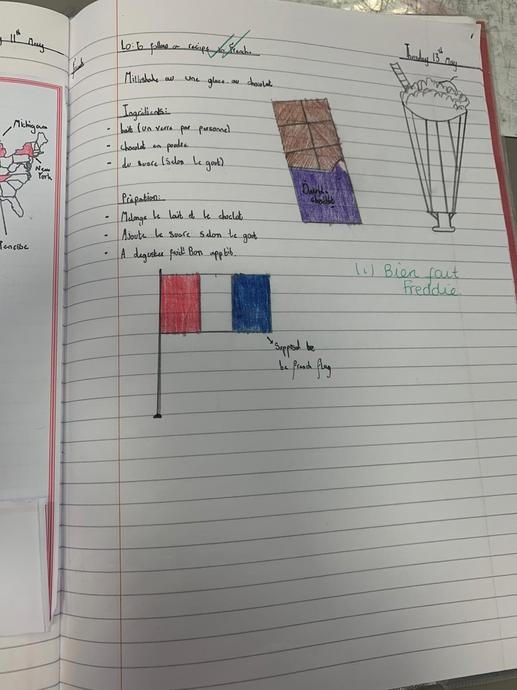 11th May
Michigan
New York
French
Tuesday 13th May
LO: To follow a recipe in French
Milkshake au une glace au chocolat
Ingrédients:
- lait (un verre par personne)
- chocolat en poudre
- du sucre (selon le goût)
Dairy chocolat
Préparation:
- Mélange le lait et le choclat
- Ajoute le sucre selon le goût
- A déguster froid! Bon apptit.
(1.) Bien fait
Freddie.
Suppost be
be french flag